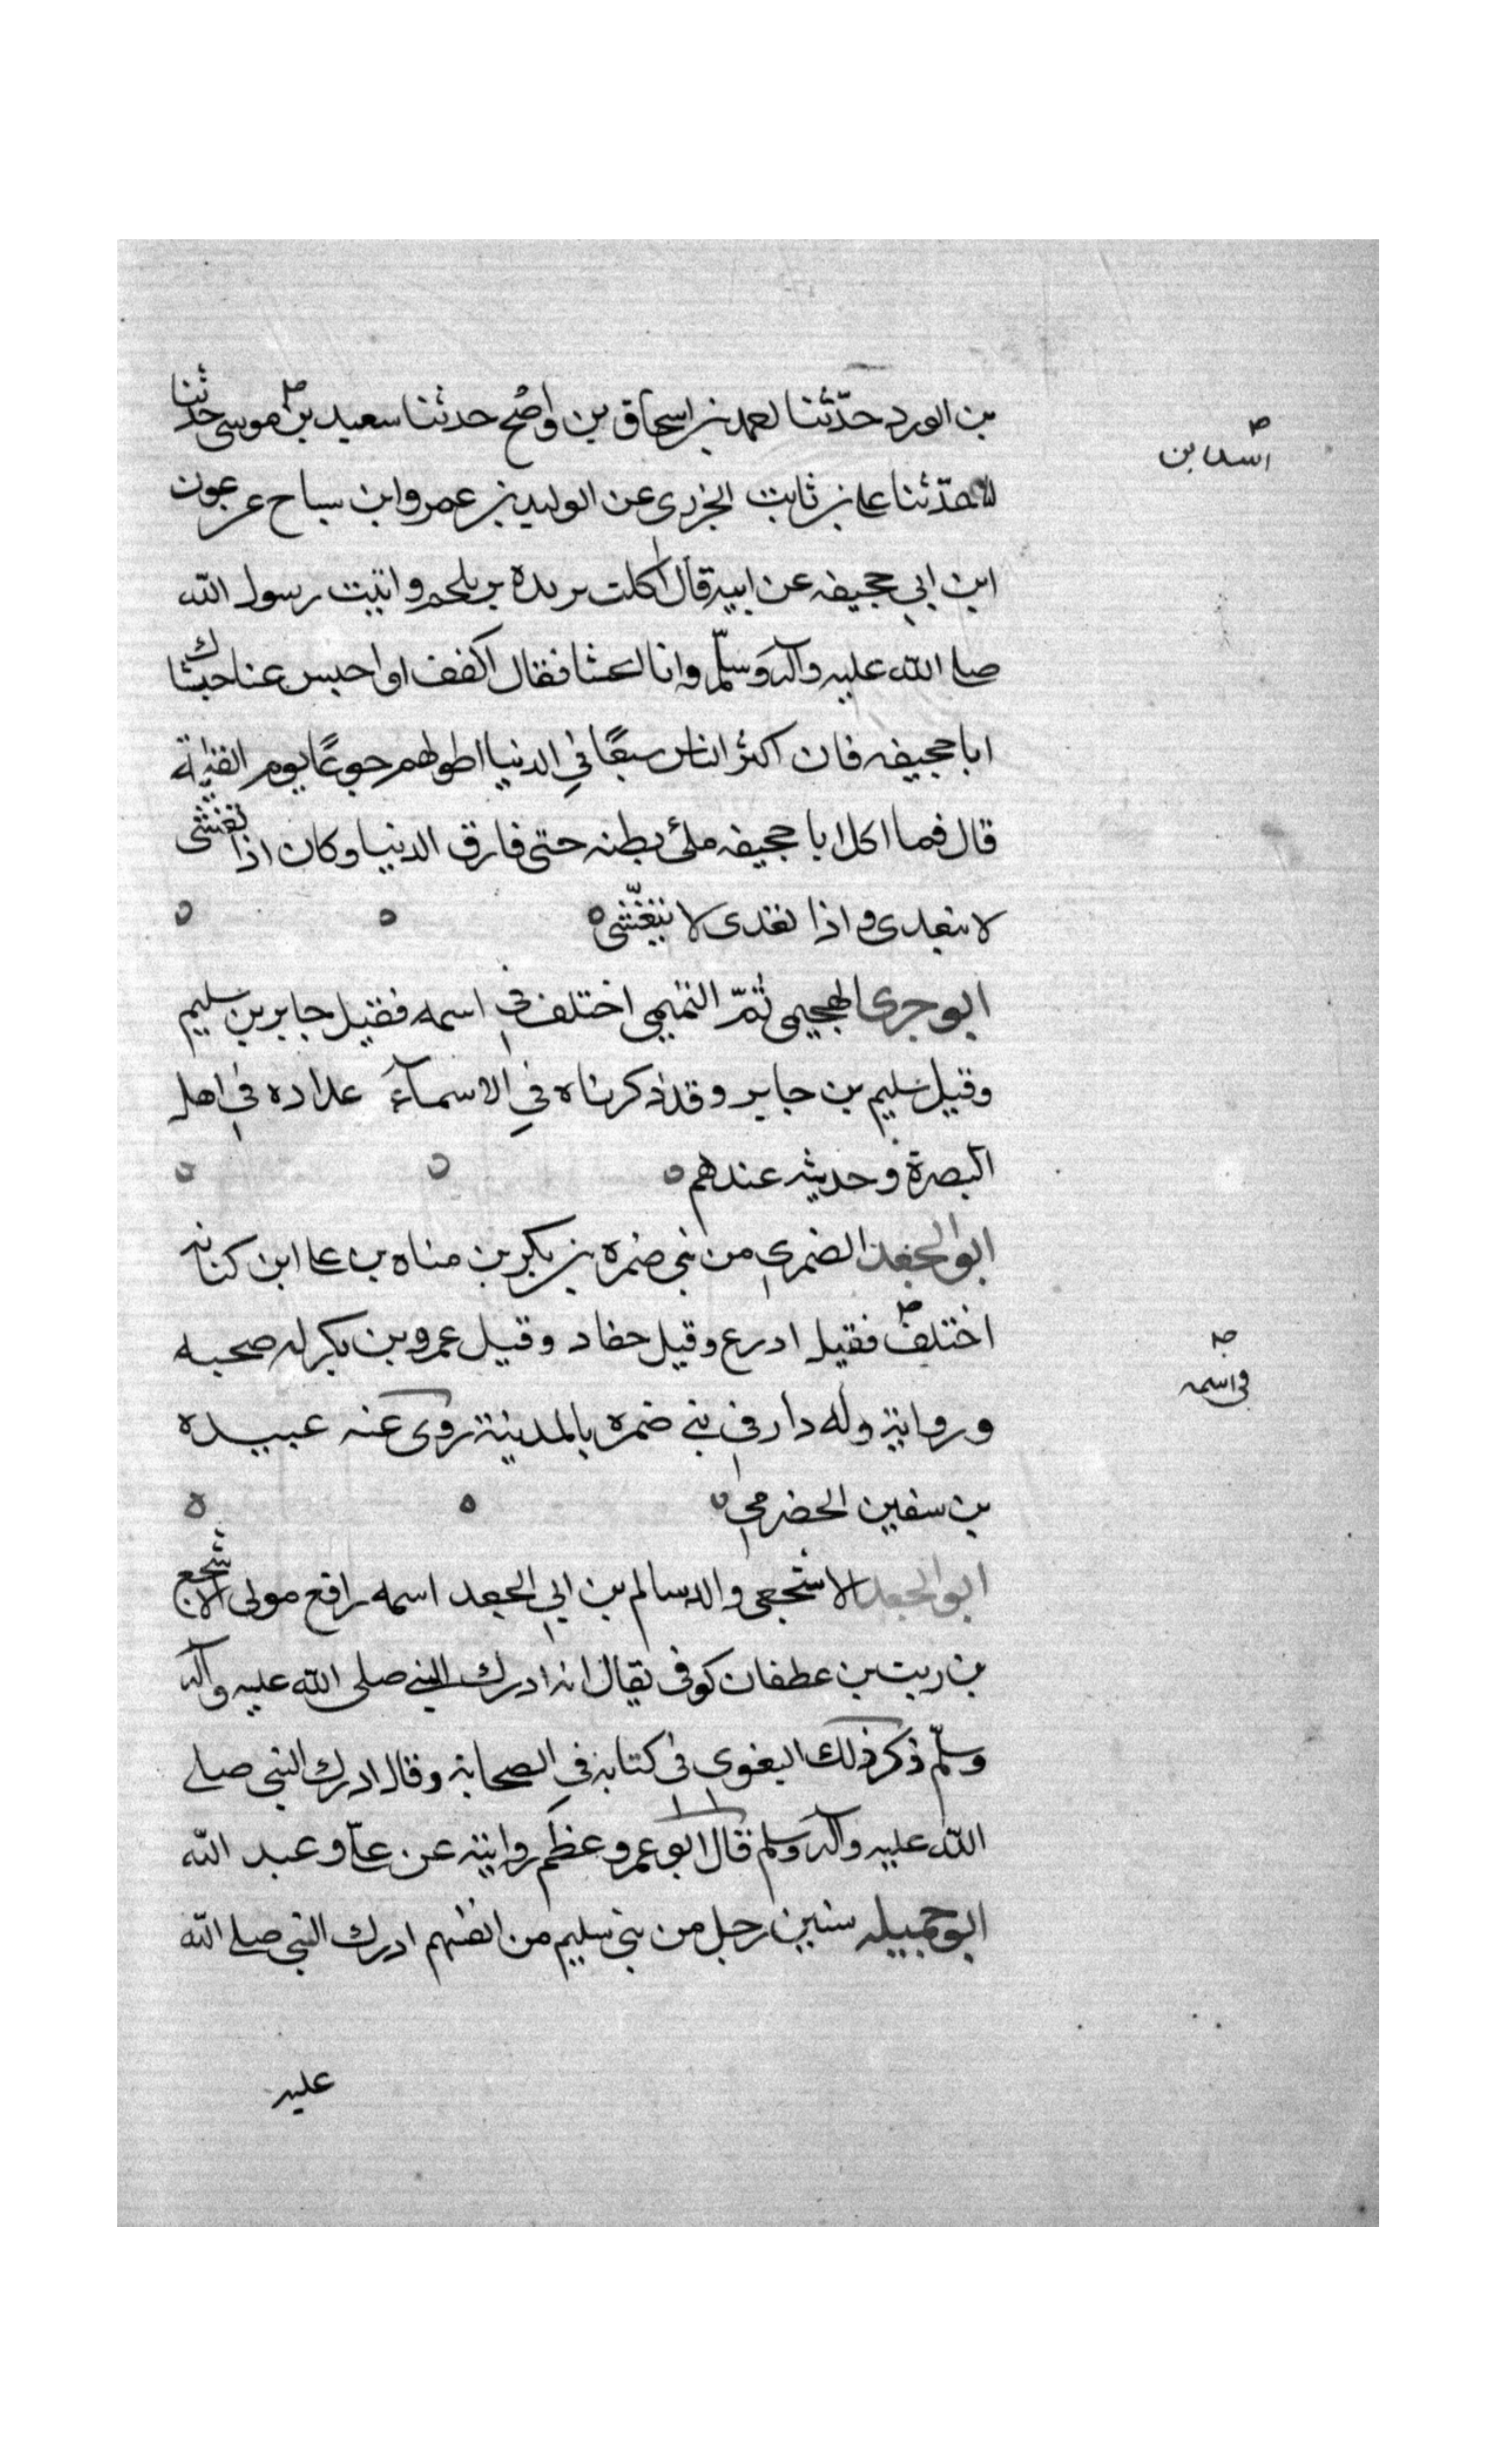 بن الورد حدّثنا احمد بن اسحاق بن واضح حدثنا سعيد بن موسى حدثنا
اسد بن
حدّثنا على بن ثابت الجزرى عن الوليد بن عمرو ابن ساج عن عون
ابن ابي جحيفه عن ابيه قال اكلت بريده بلحم واتيت رسول الله
صلى الله عليه وآله وسلّم وانا اتحشا فقال اكفف او احبس عنا حشاك
ابا جحيفه فان اكثر الناس سبعًا في الدنيا اطولهم جوعًا يوم القيٰمة
قال فما اكل ابا جحيفه ملئ بطنه حتى فارق الدنيا وكان اذا تغشى
لا يتغدى واذا تغدى لا يتغشّى
ابو جرى الهجيمى ثمّ التميمي اختلف في اسمه فقيل جابر بن سليم
وقيل سليم بن جابر وقد ذكرناه في الاسمآء عداده في اهل
البصرة وحديثه عندهم
ابو الجعد الضمري من بني ضمره بن بكر بن مناه بن على ابن كنانه
اختلف فقيل ادرع وقيل جفاد وقيل عمرو بن بكر له صحبه
فى اسمه
ورواية وله دار في بني ضمره بالمدينة روى عنه عبيده
بن سفين الحضرمي
ابو الجعد الاشجعى والد سالم بن ابي الجعد اسمه رافع مولى الاشجع
بن ريث بن عطفان كوفى يقال انه ادرك النبي صلى الله عليه وآله
وسلّم ذكر ذلك البغوى فى كتابه في الصحابة وقال ادرك النبي صلى
الله عليه وآله وسلم قال ابو عمرو عظم روايته عن علىّ وعبد الله
ابو جميله سنين رجل من بني سليم من انفسهم ادرك النبي صلى الله
عليه